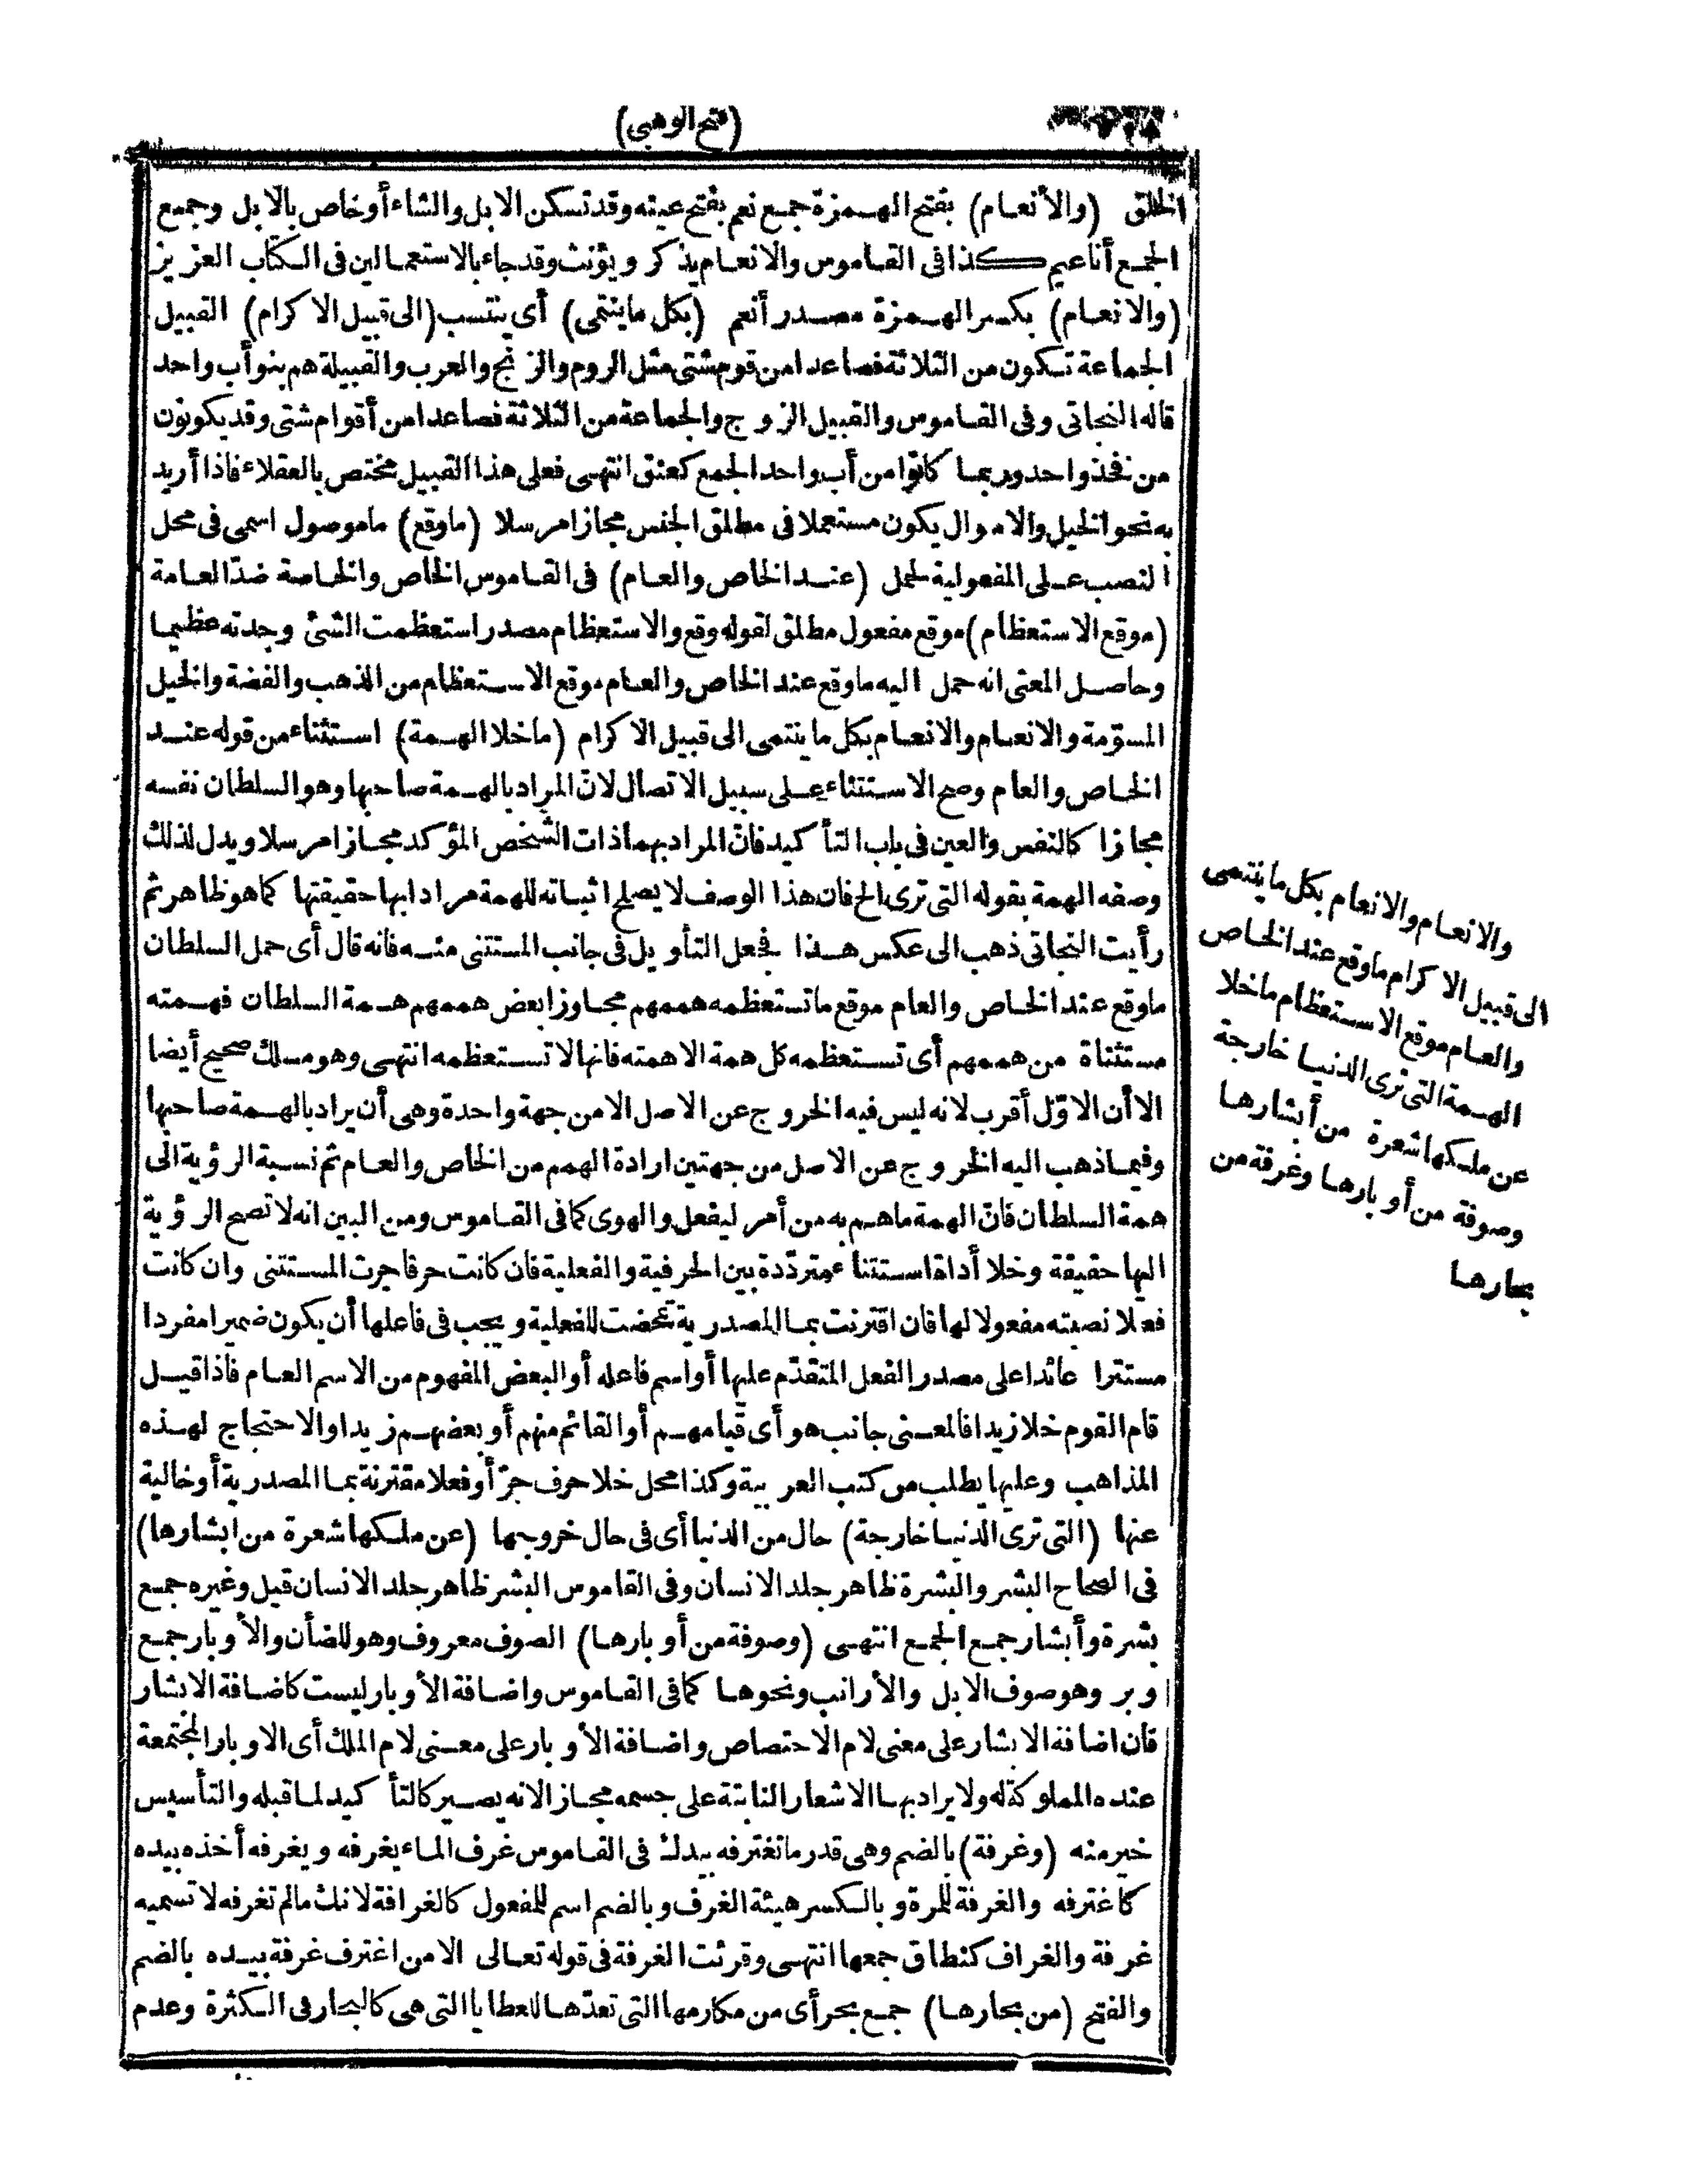 (فتح الوهبي)
الخلق (والأنعام) بفتح الهمزة جمع نعم بفتح عينه وقد تسكن الابل والشاء أو خاص بالابل وجميع
الجمع أناعيم كذا فى القاموس والانعام يذكر ويؤنث وقد جاء بالاستعمالين فى الكتاب العزيز
(والانعام) بكسر الهمزة مصدر أنعم (بكل ما ينتمى) أى ينتسب (الى قبيل الاكرام) القبيل
الجماعة تكون من الثلاثة فصاعدا من قوم شتى مثل الروم والزنج والعرب والقبيلة هم بنو أب واحد
قاله النجاتى وفى القاموس والقبيل الزوج والجماعة من الثلاثة فصاعدا من أقوام شتى وقد يكونون
من نفخذ واحد وربما كانوا من أب واحد الجمع كعنق انتهى فعلى هذا القبيل مختص بالعقلاء فاذا أريد
به نحو الخيل والاموال يكون مستعملا فى مطلق الجنس مجازا مرسلا (ماوقع) ما موصول اسمى فى محل
النصب على المفعولية لحمل (عند الخاص والعام) فى القاموس الخاص والخاصة ضدّ العامة
(موقع الاستعظام) موقع مفعول مطلق لقوله وقع والاستعظام مصدر استعظمت الشئ وجدته عظيما
وحاصل المعنى انه حمل اليه ماوقع عند الخاص والعام موقع الاستعظام من الذهب والفضة والخيل
المسوّمة والانعام والانعام بكل ما ينتمى الى قبيل الاكرام (ما خلا الهمة) استثناء من قوله عند
الخاص والعام وصح الاستثناء على سبيل الاتصال لانّ المراد بالهمة صاحبها وهو السلطان نفسه
مجازا كالنفس والعين فى باب التأكيد فانّ المراد بهما ذات الشخص المؤكد مجازا مرسلا ويدل لذلك
وصفه الهمة بقوله التى ترى الخ فان هذا الوصف لا يصلح اثباته للهمة مرادا بها حقيقتها كما هو ظاهر ثم
رأيت النجاتى ذهب الى عكس هذا فجعل التأويل فى جانب المستثنى منه فانه قال أى حمل السلطان
ماوقع عند الخاص والعام موقع ما تستعظمه هممهم مجاوزا بعض هممهم همة السلطان فهمته
مستثناة من هممهم أى تستعظمه كل همة الا همته فانها لا تستعظمه انتهى وهو مسلك صحيح أيضا
الا أن الاوّل أقرب لانه ليس فيه الخروج عن الاصل الا من جهة واحدة وهى أن يراد بالهمة صاحبها
وفيما ذهب اليه الخروج عن الاصل من جهتين ارادة الهمم من الخاص والعام ثم نسبة الرؤية الى
همة السلطان فانّ الهمة ما هم به من أمر ليفعل والهوى كما فى القاموس ومن البين انه لا تصح الرؤية
اليها حقيقة وخلا أداة استثناء متردّدة بين الحرفية والفعلية فان كانت حرفا جرت المستثنى وان كانت
فعلا نصبته مفعولا لها فان اقترنت بما المصدرية تمحضت للفعلية ويجب فى فاعلها أن يكون ضميرا مفردا
مستترا عائدا على مصدر الفعل المتقدّم عليها أو اسم فاعله أو البعض المفهوم من الاسم العام فاذا قيل
قام القوم خلا زيدا فالمعنى جانب هو أى قيامهم أو القائم منهم أو بعضهم زيدا والاحتجاج لهذه
المذاهب وعليها يطلب من كتب العربية وكذا محل خلا حرف جرّ أو فعلا مقترنة بما المصدرية أو خالية
عنها (التى ترى الدنيا خارجة) حال من الدنيا أى فى حال خروجها (عن ملكها شعرة من ابشارها)
فى الصحاح البشر والبشرة ظاهر جلد الانسان وفى القاموس البشر ظاهر جلد الانسان قيل وغيره جمع
بشرة وأبشار جمع الجمع انتهى (وصوفة من أوبارها) الصوف معروف وهو للضأن والأوبار جمع
وبر وهو صوف الابل والأرانب ونحوها كما فى القاموس واضافة الأوبار ليست كاضافة الابشار
فان اضافة الابشار على معنى لام الاختصاص واضافة الأوبار على معنى لام الملك أى الاوبار المجتمعة
عنده المملوكة له ولا يراد بها الاشعار النابتة على جسمه مجازا لانه يصير كالتأكيد لما قبله والتأسيس
خير منه (وغرفة) بالضم وهى قدر ما تغترفه بيدك فى القاموس غرف الماء يغرفه ويغرفه أخذه بيده
كاغترفه والغرفة للمرة وبالكسر هيئة الغرف وبالضم اسم للمفعول كالغرافة لانك ما لم تغرفه لا تسميه
غرفة والغراف كنطاق جمعها انتهى وقرئت الغرفة فى قوله تعالى الا من اغترف غرفة بيده بالضم
والفتح (من بحارها) جمع بحر أى من مكارمها التى تعدّها للعطايا التى هى كالبحار فى الكثرة وعدم
والانعام والانعام بكل ما ينتمى
الى قبيل الاكرام ماوقع عند الخاص
والعام موقع الاستعظام ما خلا
الهمة التى ترى الدنيا خارجة
عن ملكها شعرة من أبشارها
وصوفة من أوبارها وغرفة من
بحارها